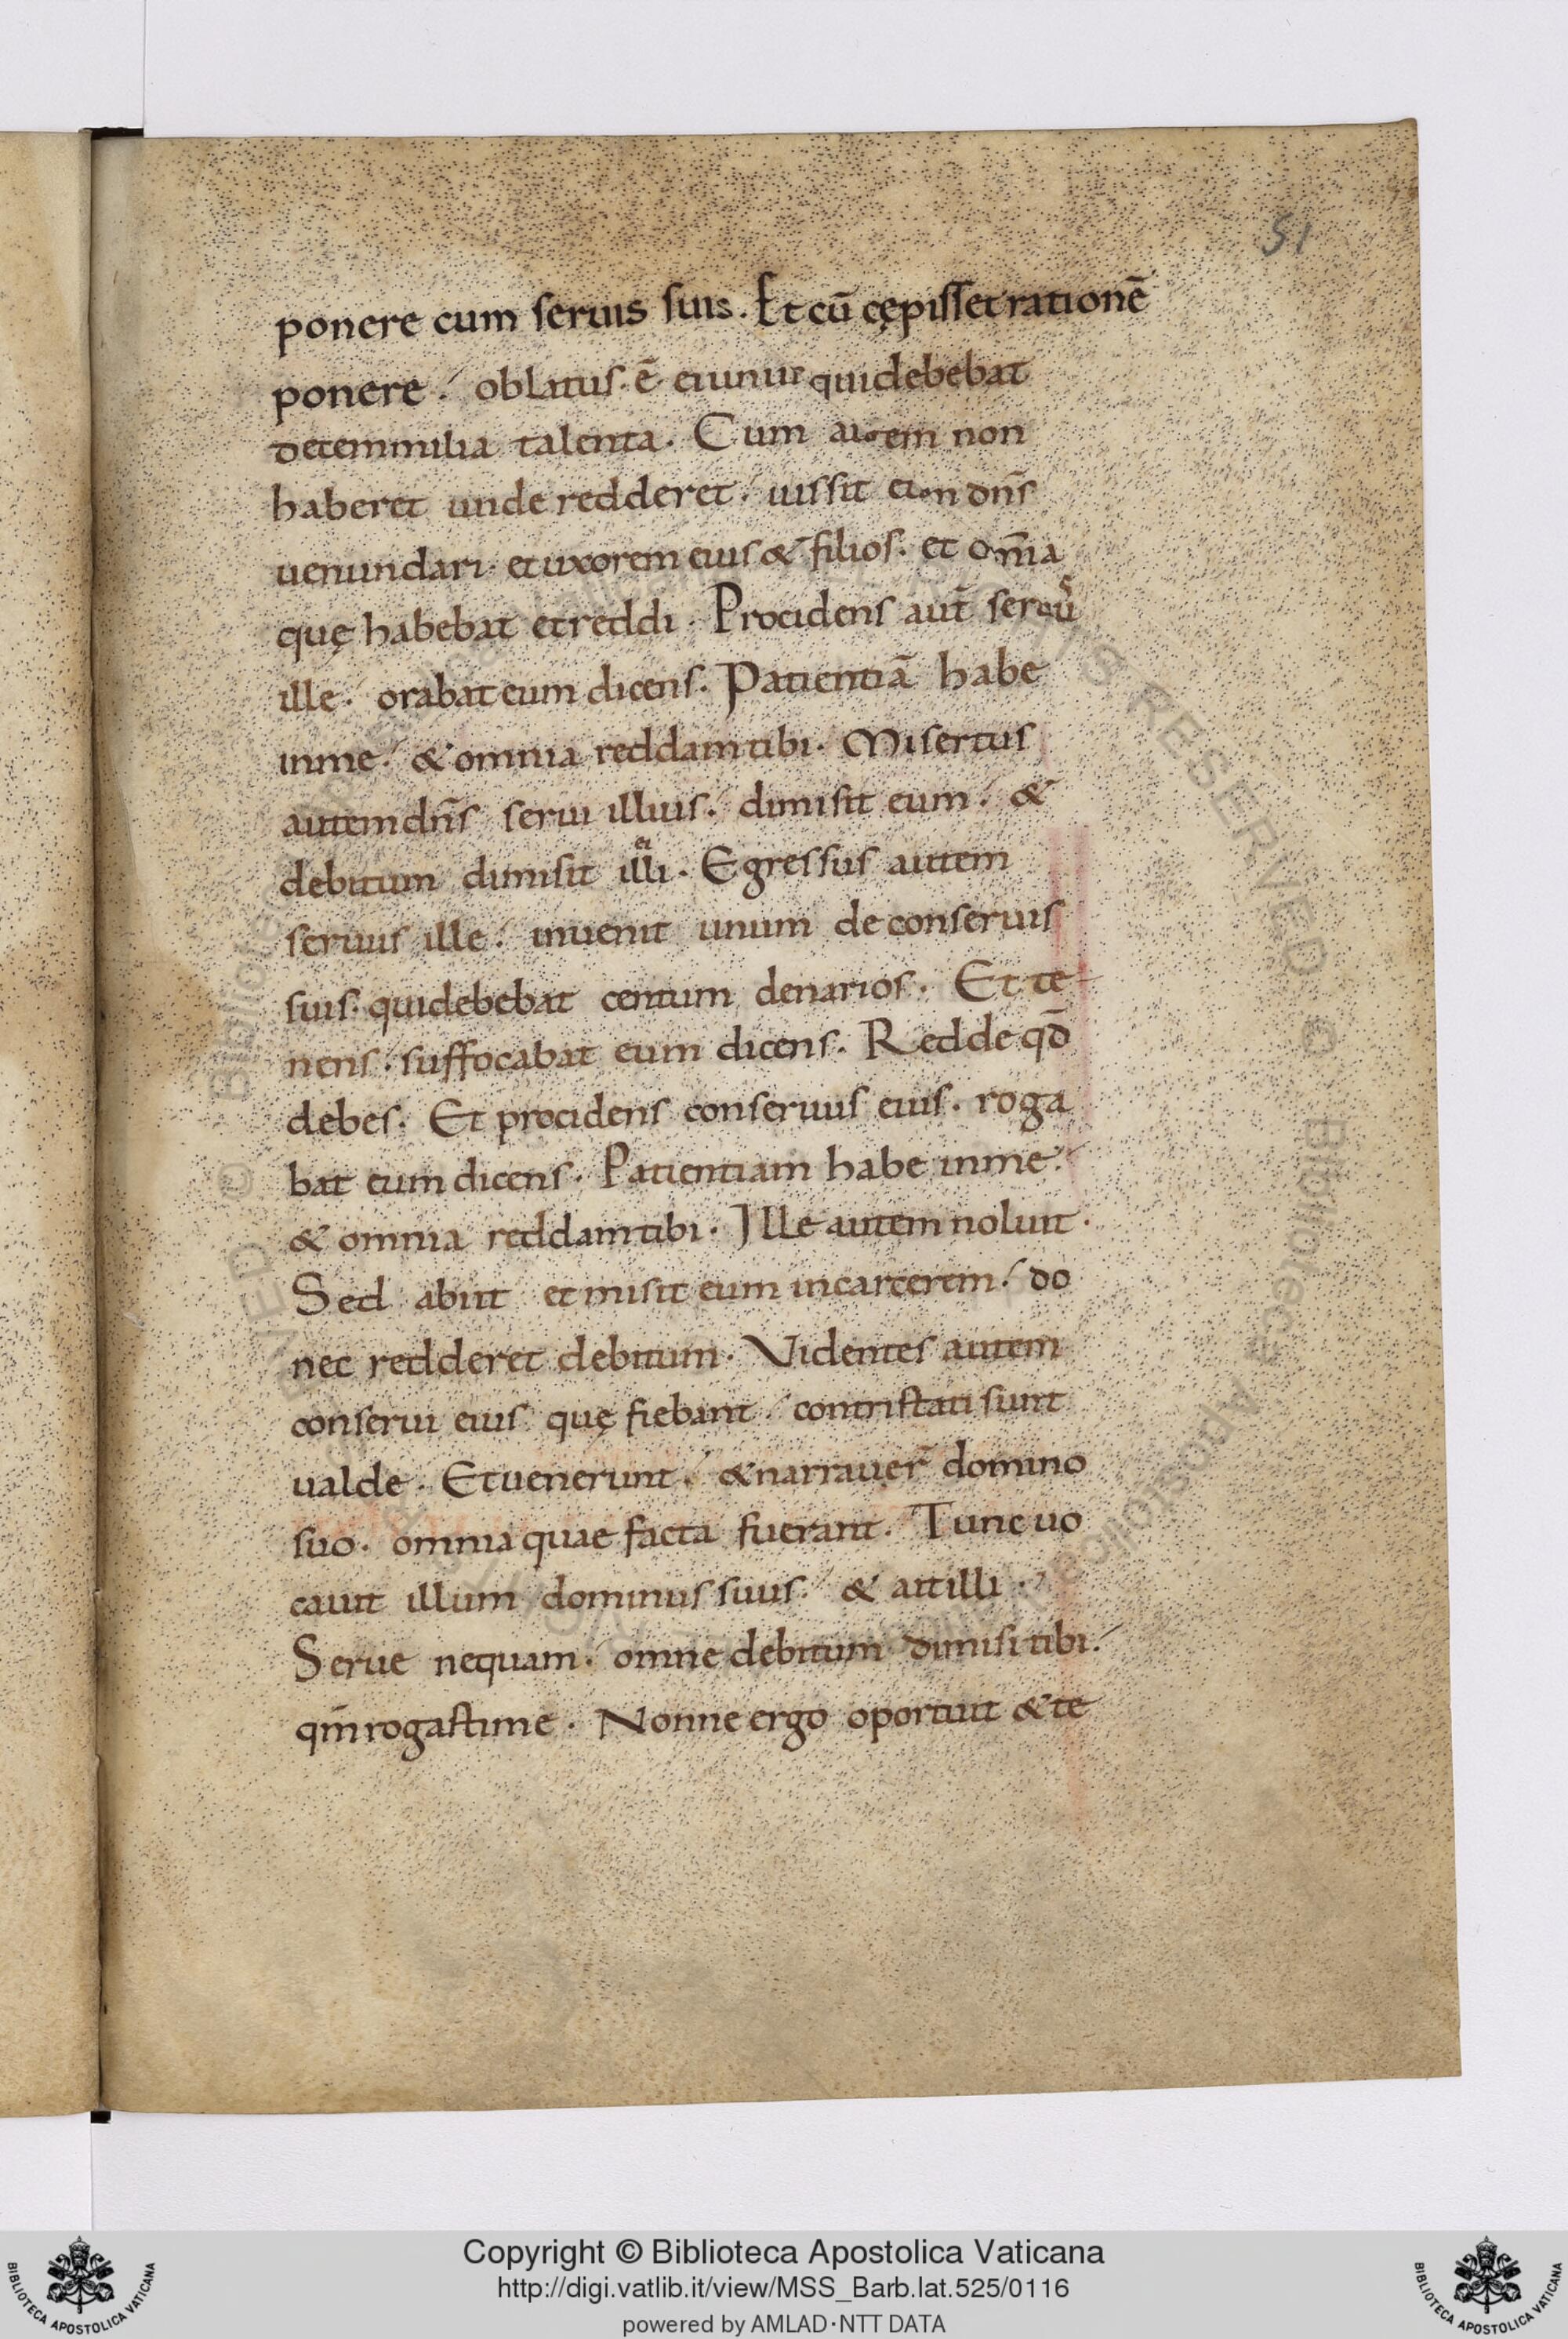 51
ponere cum seruis suis. Et cū cępisset rationē
ponere. oblatus ē ei unus qui debebat
decem milia talenta. Cum autem non
haberet unde redderet. iussit eum dn̄s
uenundari et uxorem eius & filios. et om̄ia
quę habebat et reddi. Procidens aut̄ seruus
ille. orabat eum dicens. Patientiā habe
in me. & omnia reddam tibi. Misertus
autem dn̄s serui illius. dimisit eum. &
debitum dimisit illi. Egressus autem
seruus ille. inuenit unum de conseruis
suis. qui debebat centum denarios. Et te
nens. suffocabat eum dicens. Redde qd̄
debes. Et procidens conseruus eius. roga
bat eum dicens. Patientiam habe in me.
& omnia reddam tibi. Ille autem noluit.
Sed abiit et misit eum in carcerem. do
nec redderet debitum. Videntes autem
conserui eius quę fiebant. contristati sunt
ualde. Et uenerunt. & narrauer̄ domino
suo. omnia quae facta fuerant. Tunc uo
cauit illum dominus suus. & ait illi.
Serue nequam. omne debitum dimisi tibi.
qm̄ rogasti me. Nonne ergo oportuit & te
Copyright © Biblioteca Apostolica Vaticana
http://digi.vatlib.it/view/MSS_Barb.lat.525/0116
powered by AMLAD·NTT DATA
BIBLIOTECA APOSTOLICA VATICANA
BIBLIOTECA APOSTOLICA VATICANA